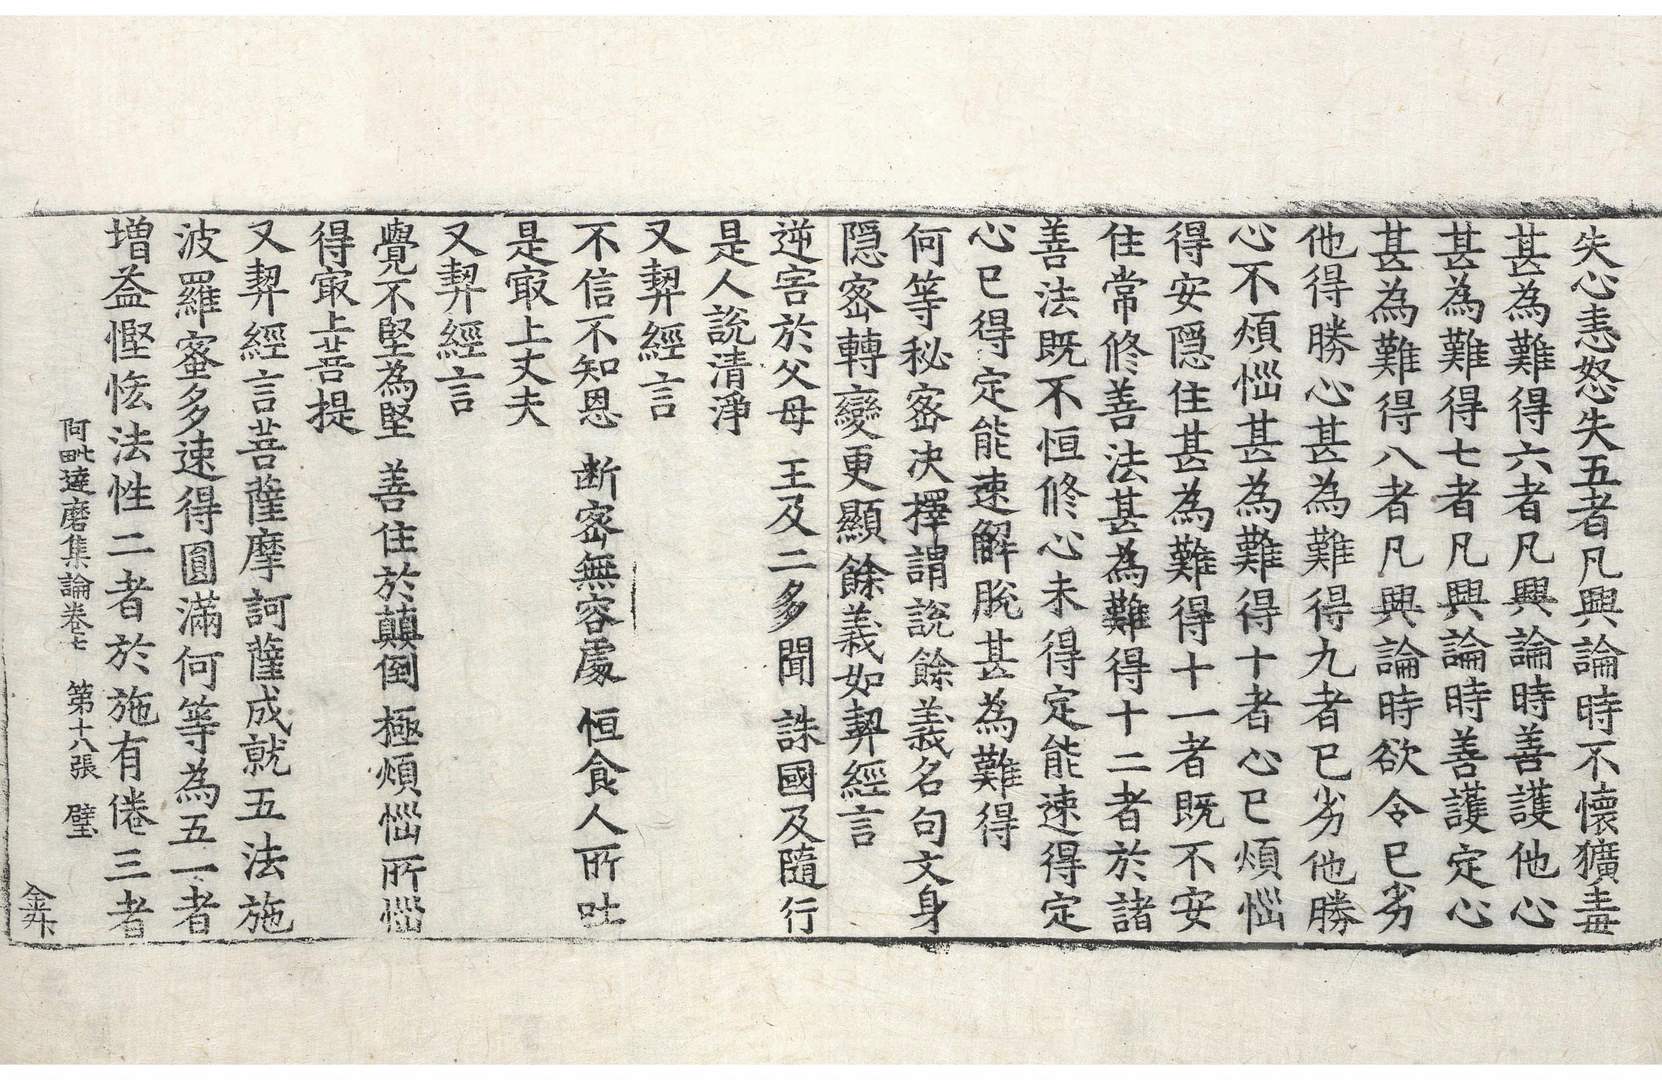 失心恚怒失五者凡興論時不懷獷毒
甚為難得六者凡興論時善護他心
甚為難得七者凡興論時善護定心
甚為難得八者凡興論時欲令已劣
他得勝心甚為難得九者已劣他勝
心不煩惱甚為難得十者心已煩惱
得安隱住甚為難得十一者既不安
住常修善法甚為難得十二者於諸
善法既不恒修心未得定能速得定
心已得定能速解脫甚為難得
何等秘密決擇謂說餘義名句文身
隱密轉變更顯餘義如契經言
逆害於父母 王及二多聞 誅國及隨行
是人說清淨
又契經言
不信不知恩 断密無容處 恒食人所吐
是㝡上丈夫
又契經言
覺不堅為堅 善住於顛倒 極煩惱所惱
得㝡上菩提
又契經言菩薩摩訶薩成就五法施
波羅蜜多速得圓滿何等為五一者
增益慳悋法性二者於施有倦三者
阿毗達磨集論卷七 第十八張 璧
金升